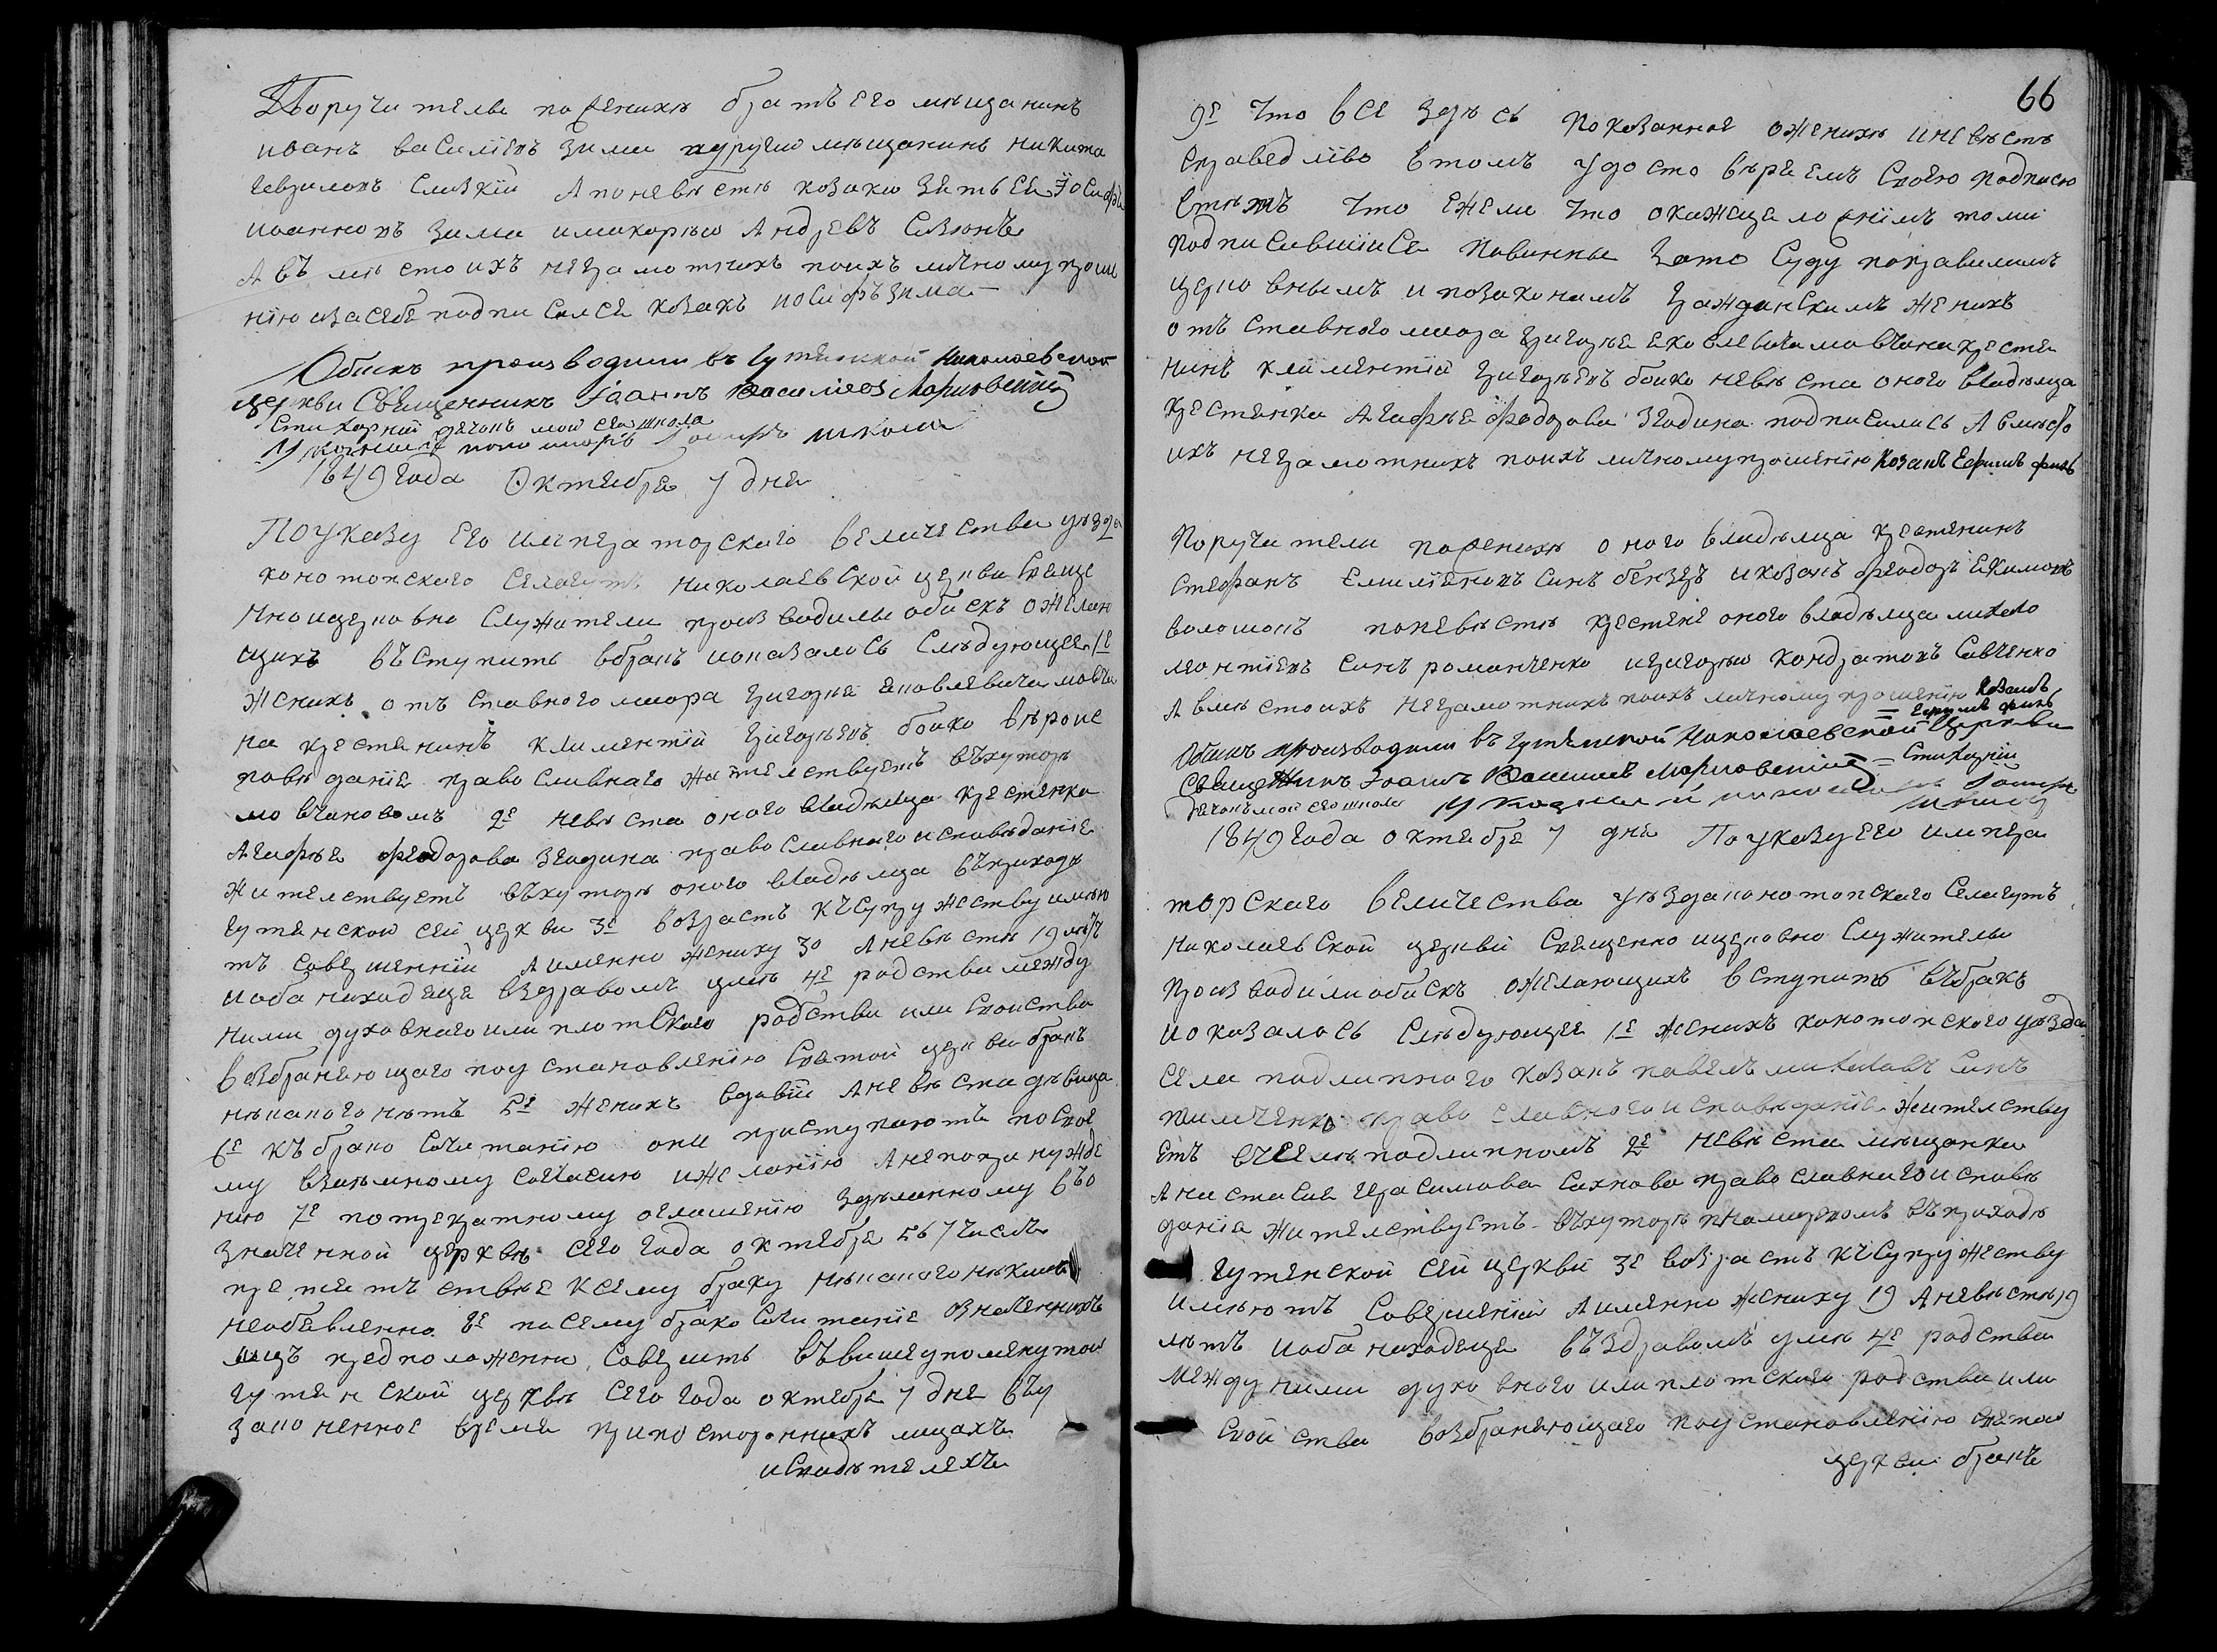 Поручители по женихѣ братъ его мѣщанинъ
иванъ василіевъ Зима и другию мѣщанинъ никита
Слизкій А по невѣстѣ козаки зять Ея Іосифъ
иванновъ Зима и макорию Андревъ
А вѣ мѣсто ихъ неграмотнихъ по ихъ личному проше
нію и за себе подписался козакъ иосифъ зима
Обискъ производили въ Гутянской Николаевской
церкви Священникъ Іоаннъ Васильевъ Марковскій
Стихарній дячокъ моисей школа
школа
1849 года Октября 7 дня
По указу Его императорского величества уѣзда
конотопского села гутъ николаевской церкви Свяще
нно и церковно Служители производили обискъ о желаю
щихъ въступить в бракъ и оказалось Слѣдующее 1е
Женихъ отъ ставного маіора григорія яковлевича мовча
на крестянинъ климентій григоріевъ бойко вѣроис
повѣданія православнаго жителствуетъ въ хуторѣ
мовчановомъ 2е невѣста оного владѣлца крестянка
Агафія феодорова Згодина православнаго исповѣданія
жителствуетъ въ хуторѣ оного владѣлца въ приходѣ
гутянской сей церкви 3е возрастъ къ супружеству имѣю
тъ Совершенній А именно жениху 30 А невѣстѣ 19 лѣтъ
и оба находяця в здравомъ умѣ 4е родства между
ними духовнаго или плотского родства или своиства
возбраняющаго по установленію Святой церкви бракъ
нѣкакого нѣтъ 5е женихъ вдовій А невѣста дѣвица
6е къ бракосочитанію они приступаютъ по свое
му взаимному согласію и желанію А не по принужде
нию 7е по трекратному оглашенію здѣланному въ о
значенной церквѣ сего года октября 5 6 7 числъ
препятъствіе к сему браку нѣкакого нѣкимъ
необявленно 8е по сему бракосочитаніе означеннихъ
лицъ предположенно совершить въ вишеупомянутой
гутянской церквѣ сего года октября 7 дня въ у
законенное время при посторонихъ лицахъ
и свидѣтеляхъ
66
9е Что все здѣсь показанное о женихѣ и невѣстѣ
справедліво в томъ удостовѣряемъ Своею подписю
стѣмъ что ежели что окажеця ложнимъ то ми
подписавшіися повинны за то Суду по правиламъ
церковнымъ и по законамъ гражданскимъ женихъ
отъ ставного маіора григорія яковлевича мовчана крестя
нинъ климентій григоріевъ бойко невѣста оного владѣлца
крестянка Агафія феодорова Згодина подписались А вмѣсто
ихъ неграмотнихъ по ихъ личному прошенію козакъ Ефимъ
Поручители по женихѣ оного владѣлца крестянинъ
стефанъ Емиліяновъ синъ и козакъ феодоръ Екимовъ
волошокъ по невѣстѣ крестяне оного владѣлца михаило
леонтіевъ синъ романченко и григорію кондратовъ Савченко
А вмѣсто ихъ неграмотнихъ по ихъ личному прошению козакъ
Ефимъ
Обискъ производили въ Гутянской Николаевской Церкви
Священникъ Іоаннъ Васильевъ Марковскій Стихарній
дячокъ моисей школа
1849 года октября 7 дня По указу его импера
торского величества уѣзда конотопского села гутъ
николаевской церкви Священно и церковно Служители
производили обискъ о желающихъ вступить въ бракъ
и оказалось Слѣдующее 1е женихъ конотопского уѣзда
села подлипного козакъ павелъ михаиловъ синъ
православного исповѣданія жителству
етъ въ селѣ подлипномъ 2е невѣста мѣщанка
Анастасія Герасимова Сахнова православнаго исповѣ
данія жителствуетъ въ хуторѣ въ приходѣ
гутянской сей церкви 3е возрастъ къ супружеству
имѣютъ совершенній А именно жениху 19 А невѣстѣ 19
лѣтъ и оба находяця въ здравомъ умѣ 4е родства
между ними духовного или плотского родства или
свойства возбраняющаго по установленію святой
церкви бракъ